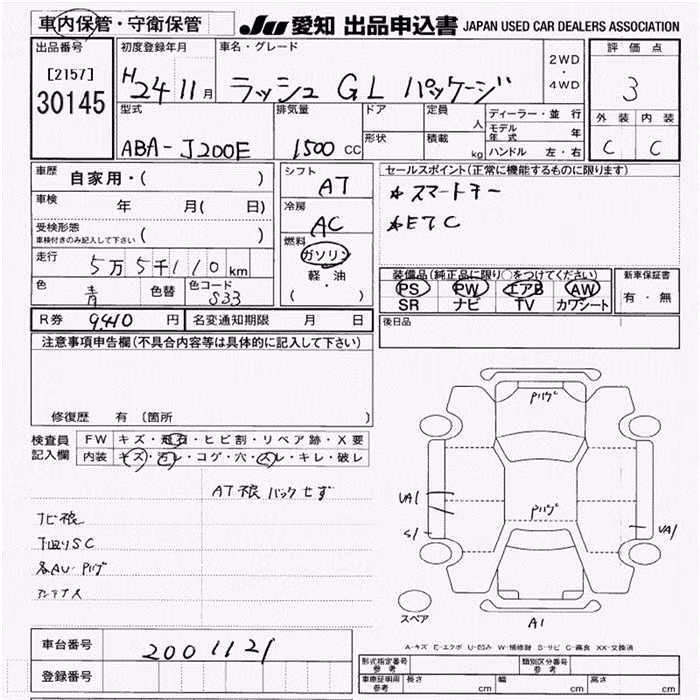 車内保管・守衛保管
JU 愛知 出品申込書 JAPAN USED CAR DEALERS ASSOCIATION
出品番号
[2157]
30145
初度登録年月
H24 11月
車名・グレード
ラッシュ GL パッケージ
2WD
・
4WD
評価点
3
外装 内装
C C
型式
ABA-J200E
排気量
1500 CC
ドア
形状
定員
人
積載
kg
ディーラー・並行
モデル年式 年
ハンドル 左・右
車歴 自家用・( )
車検 年 月( 日)
受検形態
車検付きのみ記入して下さい ( )
走行 5万5千110km
色 青 色替 色コード S33
シフト
AT
冷房
AC
燃料
ガソリン
軽・油
( )
セールスポイント(正常に機能するものに限ります)
*スマートキー
*ETC
装備品(純正品に限り○をつけてください)
PS PW エアB AW
SR ナビ TV カワシート
新車保証書
有・無
R券 9,410円 名変通知期限 月 日
後日品
注意事項申告欄(不具合内容等は具体的に記入して下さい)
修復歴 有 〔箇所 〕
検査員
記入欄
FW キズ・飛石・ヒビ割・リペア跡・X要
内装 キズ・汚レ・コゲ・穴・スレ・キレ・破レ
AT狼バックせず
下廻りSC
Pハゲ
Pハゲ
UA1
S1
UA1
A1
スペア
A-キズ E-エクボ U-凹み W-補修跡 S-サビ C-腐食 XX-交換済
車台番号 2001121
登録番号
形式指定番号
参考
類別区分番号
参考
車庫証明用
参考
長さ cm 幅 cm 高さ cm